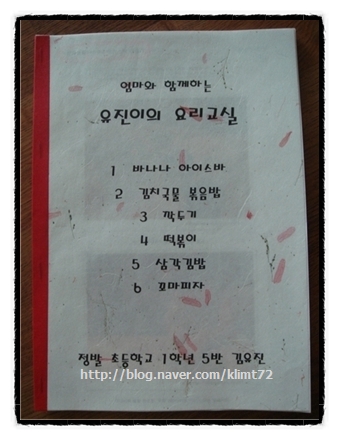 엄마와 함께하는
유진이의 요리교실
1 바나나 아이스바
2 김치국물 볶음밥
3 깍두기
4 떡볶이
5 삼각김밥
6 꼬마피자
정발 초등학교 1학년 5반 김유진
http://blog.naver.com/klimt72